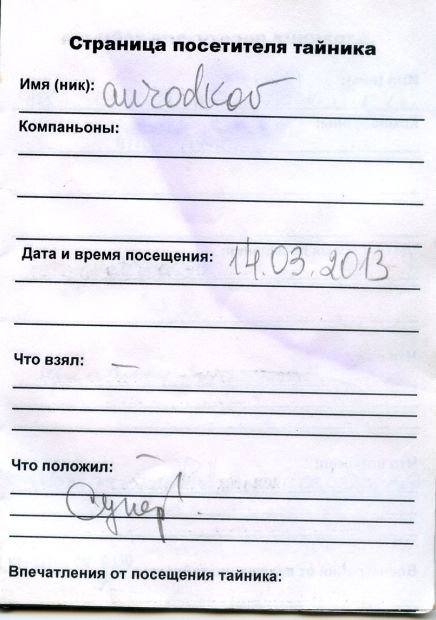 Страница посетителя тайника
Имя (ник): aurodkov
Компаньоны:
Дата и время посещения: 14.03.2013
Что взял: —
Что положил: —
Супер!
Впечатления от посещения тайника: